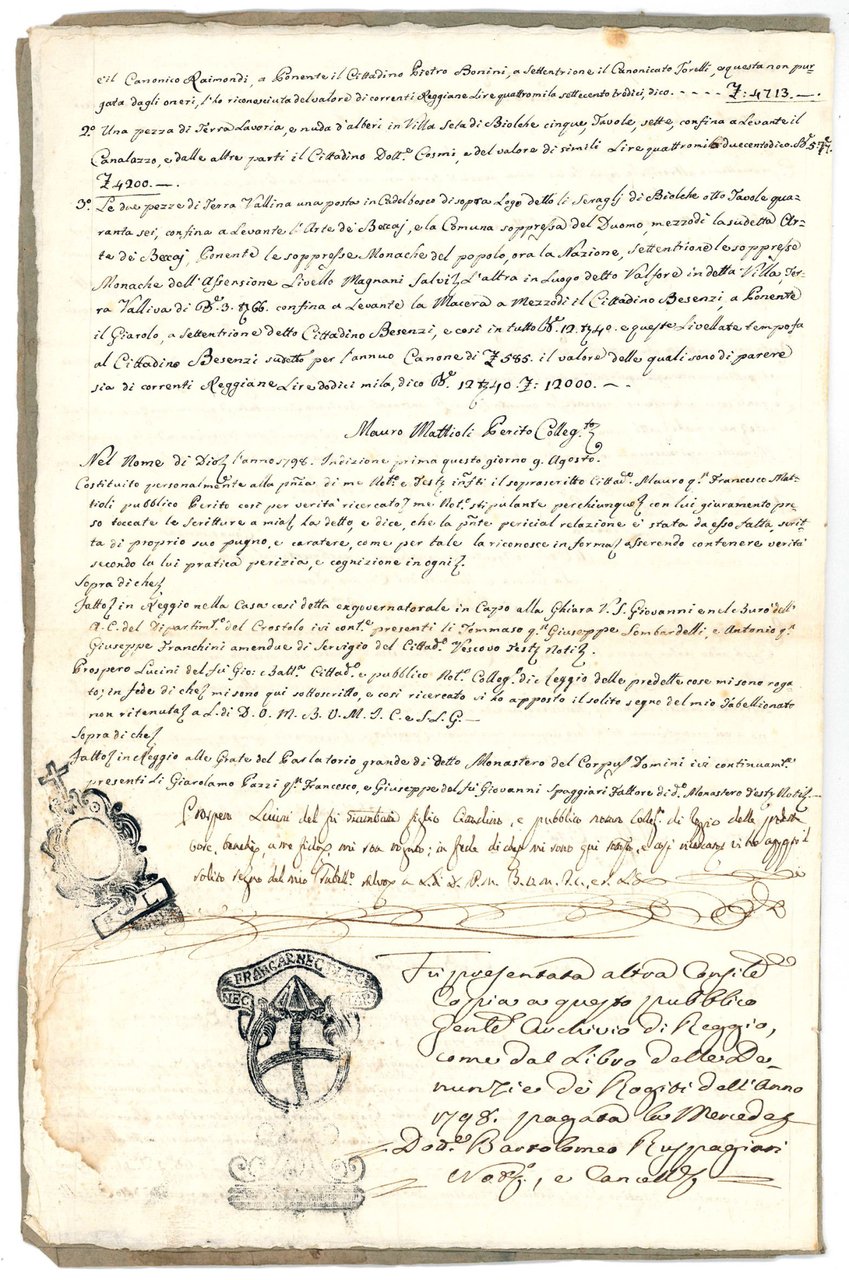 e il Canonico Raimondi, a Ponente il Cittadino Pietro Bonini, a Settentrione il Canonicato Torelli, e questa non pur-
gata dagli oneri, l'ho riconosciuta del valore di correnti Reggiane Lire quattromila settecento tredici, dico. - - - - - £: 4713. —.
2.º Una pezza di Terra Lavoria, e nuda d'alberi in Villa Seta di Biolche cinque, Tavole, sette, confina a Levante il
Canalazzo, e dalle altre parti il Cittadino Dott.e Cosmi, e del valore di simili Lire quattromila duecento dico. B.e 5. 7.
£ 4200. —.
3.º Le due pezze di Terra Valliva una posta in Cadelbosco di sopra Logo detto li Seraglj di Biolche otto Tavole qua-
ranta sei, confina a Levante l'Arte dei Beccaj, e la Comuna soppressa del Duomo, mezzodì la sudetta Ar-
te dei Beccaj, Ponente le soppresse Monache del popolo, ora la Nazione, Settentrione le soppresse
Monache dell'Assensione Livello Magnani Salvi L'altra in Luogo detto Valfore in detta Villa, Ter-
ra Valliva di B.e 3. 66. confina a Levante la Macera a Mezzodì il Cittadino Besenzi, a Ponente
il Giarolo, a Settentrione detto Cittadino Besenzi, e così in tutto B.e 12. 40. e queste Livellate tempo fa
al Cittadino Besenzi sudetto per l'annuo Canone di £ 585. il valore delle quali sono di parere
sia di correnti Reggiane Lire dodici mila, dico B.e 12 40. £: 12000. — —
Mauro Mattioli Perito Colleg.to
Nel Nome di Dio l'anno 1798. Indizione prima questo giorno 9. Agosto.
Costituito personalmente alla pñza di me Not.o e Testj infñti il soprascritto Cittad.o Mauro q.m Francesco Mat-
tioli pubblico Perito così per verità ricercato me Not.o stipulante per chiunque con lui giuramento pre-
so toccate le Scritture a mia ha detto, e dice, che la pñte pericial relazione è stata da esso fatta scrit-
ta di proprio suo pugno, e caratere, come per tale la riconosce in forma asserendo contenere verità
secondo la lui pratica perizia, e cognizione in ogni.
Sopra di che
Fatto in Reggio nella Casa così detta exgovernatorale in Capo alla Ghiara V. S. Giovanni e nel Burò dell'
A. C. del Dipartim.to del Crostolo ivi cont.e presenti li Tommaso q.m Giuseppe Lombardelli, e Antonio q.m
Giuseppe Franchini amendue di Servigio del Cittad.o Vescovo Testj Noti.
Prospero Lucini del fu Gio: Batt.a Cittad.o e pubblico Not.o Colleg.o di Reggio delle predette cose mi sono roga-
to; in fede di che mi sono qui sottoscritto, e così ricercato vi ho apposto il solito segno del mio Tabellionato
non ritenuta a L. di D. O. M. B. V. M. I. C. e S. L. G. —
Sopra di che
Fatto in Reggio alle Grate del Parlatorio grande di Detto Monastero del Corpus Domini ivi continuam.e
presenti li Giarolamo Pazzi q.m Francesco, e Giuseppe del fu Giovanni Spaggiari Fattore di d.o Monastero Testj Noti. —
Prospero Lucini del fu Giambatta Cittadino, e pubblico Colleg.o di Reggio delle predette
mi son rogato; in fede di che mi sono qui e così ricercato vi ho apposto il
solito segno del mio Tabell.o a L. di D. O. M. B. V. M.
FRANGAR NEC
NEC
Fù presentata altra Consile
Copia a questo pubblico
Gen.le Archivio di Reggio,
come dal Libro delle De-
nunzie dei Rogiti dell'Anno
1798. pagata la Mercede
Dott.e Bartolomeo Ruspagiari
Not.o, e Cancell.e